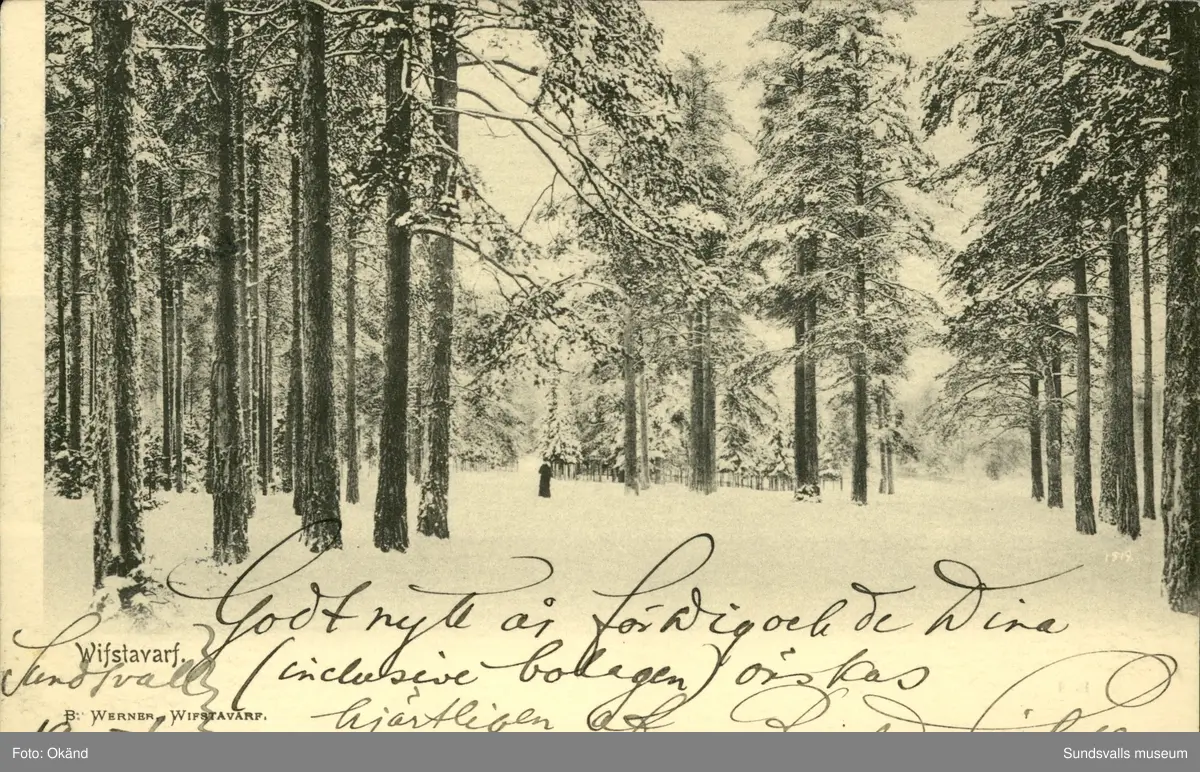 1919
Wifstavarf.
Sundsvall
B. Werner, Wifstavarf.
Godt nytt år för Dig och de Dina
(inclusive bolagen) önskas
hjärtligen af
Foto: Okänd
Sundsvalls museum